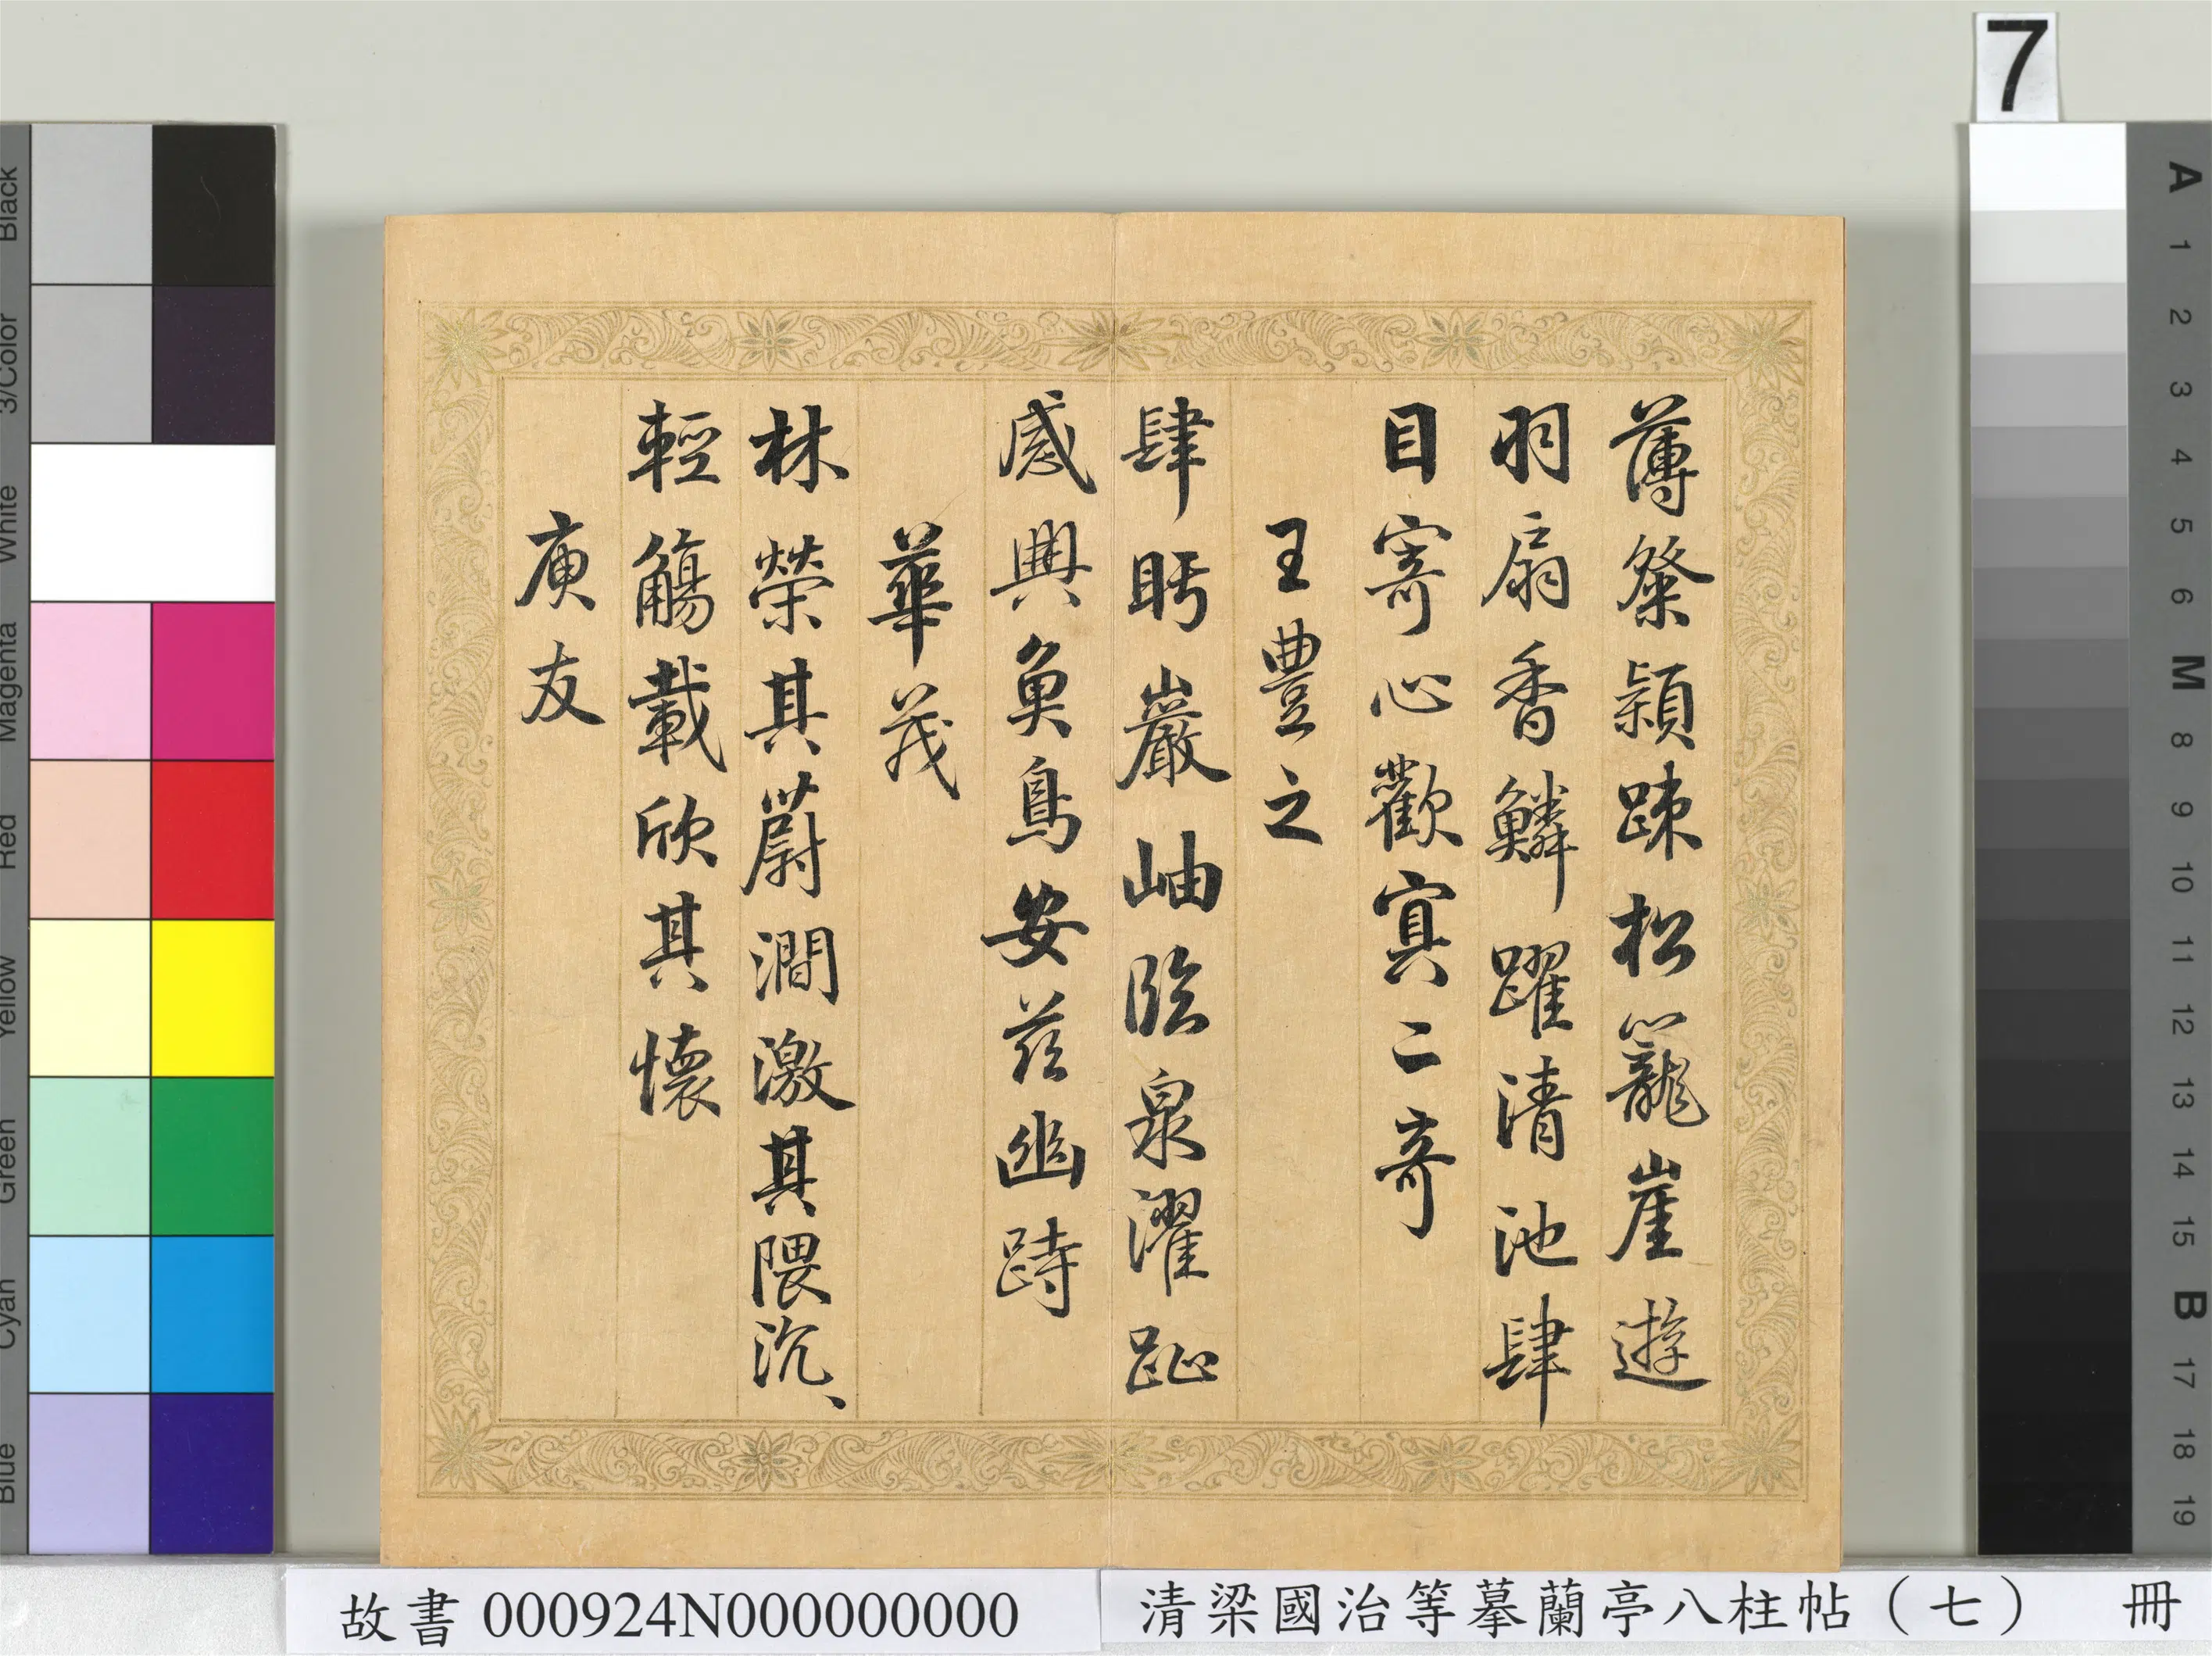 7
薄粲穎踈松籠崖遊
羽扇香鱗躍清池肆
目寄心歡冥二奇
王豊之
肆眄巖岫臨泉濯趾
感興魚鳥安茲幽跱
華茂
林榮其蔚澗激其隈汎、
輕觴載欣其懷
庾友
故書 000924N000000000
清梁國治等摹蘭亭八柱帖（七） 冊
Black
3/Color
White
Magenta
Red
Yellow
Green
Cyan
Blue
A
1
2
3
4
5
6
M
8
9
10
11
12
13
14
15
B
17
18
19